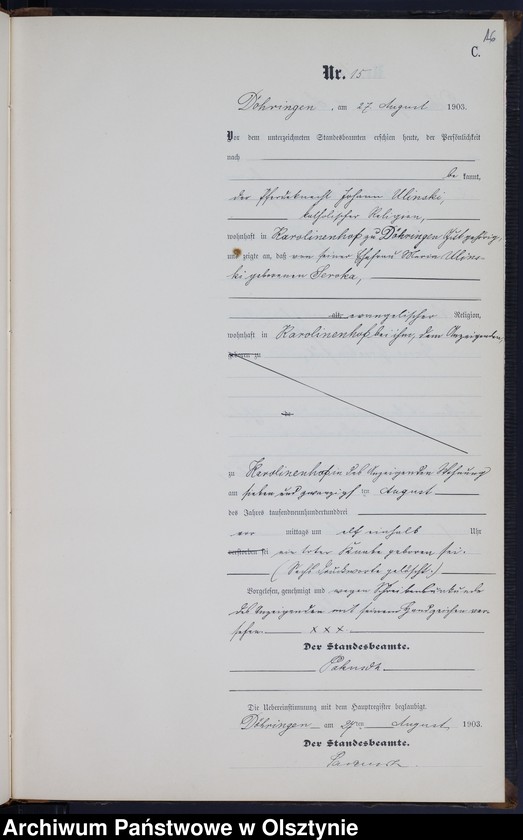 16
C.
Nr. 15
Döhringen, am 27 August 1903.
Vor dem unterzeichneten Standesbeamten erschien heute, der Persönlichkeit
nach
be kannt,
der Pferdeknecht Johann Ulinski,
katholischer Religion,
wohnhaft in Karolinenhof zu Döhringen Gut gehörig,
und zeigte an, daß von seiner Ehefrau Maria Ulins-
ki geborenen Seroka,
alt, evangelischer Religion,
wohnhaft in Karolinenhof bei ihm, dem Anzeigenden,
geboren zu
zu Karolinenhof in des Anzeigenden Wohnung
am sieben und zwanzigsten August
des Jahres tausendneunhundertunddrei
vor mittags um elf einhalb Uhr
verstorben sei ein toter Knabe geboren sei.
(Sechs Druckworte gelöscht.)
Vorgelesen, genehmigt und wegen Schreibensunkunde
des Anzeigenden mit seinem Handzeichen ver-
sehen. x x x
Der Standesbeamte.
Die Uebereinstimmung mit dem Hauptregister beglaubigt.
Döhringen am 27ten August 1903.
Der Standesbeamte.
Archiwum Państwowe w Olsztynie